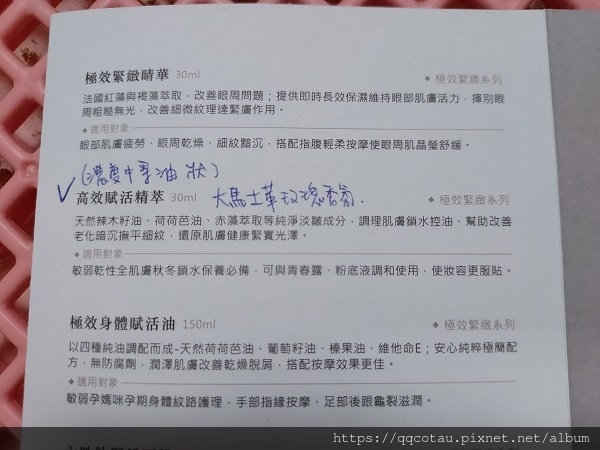 極效緊緻睛華 30ml ◆ 極效緊緻系列
法國紅藻與褐藻萃取，改善眼周問題；提供即時長效保濕維持眼部肌膚活力，揮別眼
周粗糙無光，改善細微紋理達緊膚作用。
◆適用對象
眼部肌膚疲勞、眼周乾燥、細紋黯沉，搭配指腹輕柔按摩使眼周肌晶瑩舒緩。
(濃度中 油狀)
✓高效賦活精萃 30ml 大馬士革玫瑰香氛. ◆ 極效緊緻系列
天然辣木籽油、荷荷芭油、赤藻萃取等純淨淡皺成分，調理肌膚鎖水控油、幫助改善
老化暗沉撫平細紋，還原肌膚健康緊實光澤。
◆適用對象
敏弱乾性全肌膚秋冬鎖水保養必備，可與青春露、粉底液調和使用，使妝容更服貼。
極效身體賦活油 150ml ◆ 極效緊緻系列
以四種純油調配而成-天然荷荷芭油、葡萄籽油、榛果油、維他命E；安心純粹極簡配
方，無防腐劑，潤澤肌膚改善乾燥脫屑，搭配按摩效果更佳。
◆適用對象
敏弱孕媽咪孕期身體紋路護理，手部指緣按摩、足部後跟龜裂滋潤。
https://qqcotau.pixnet.net/album